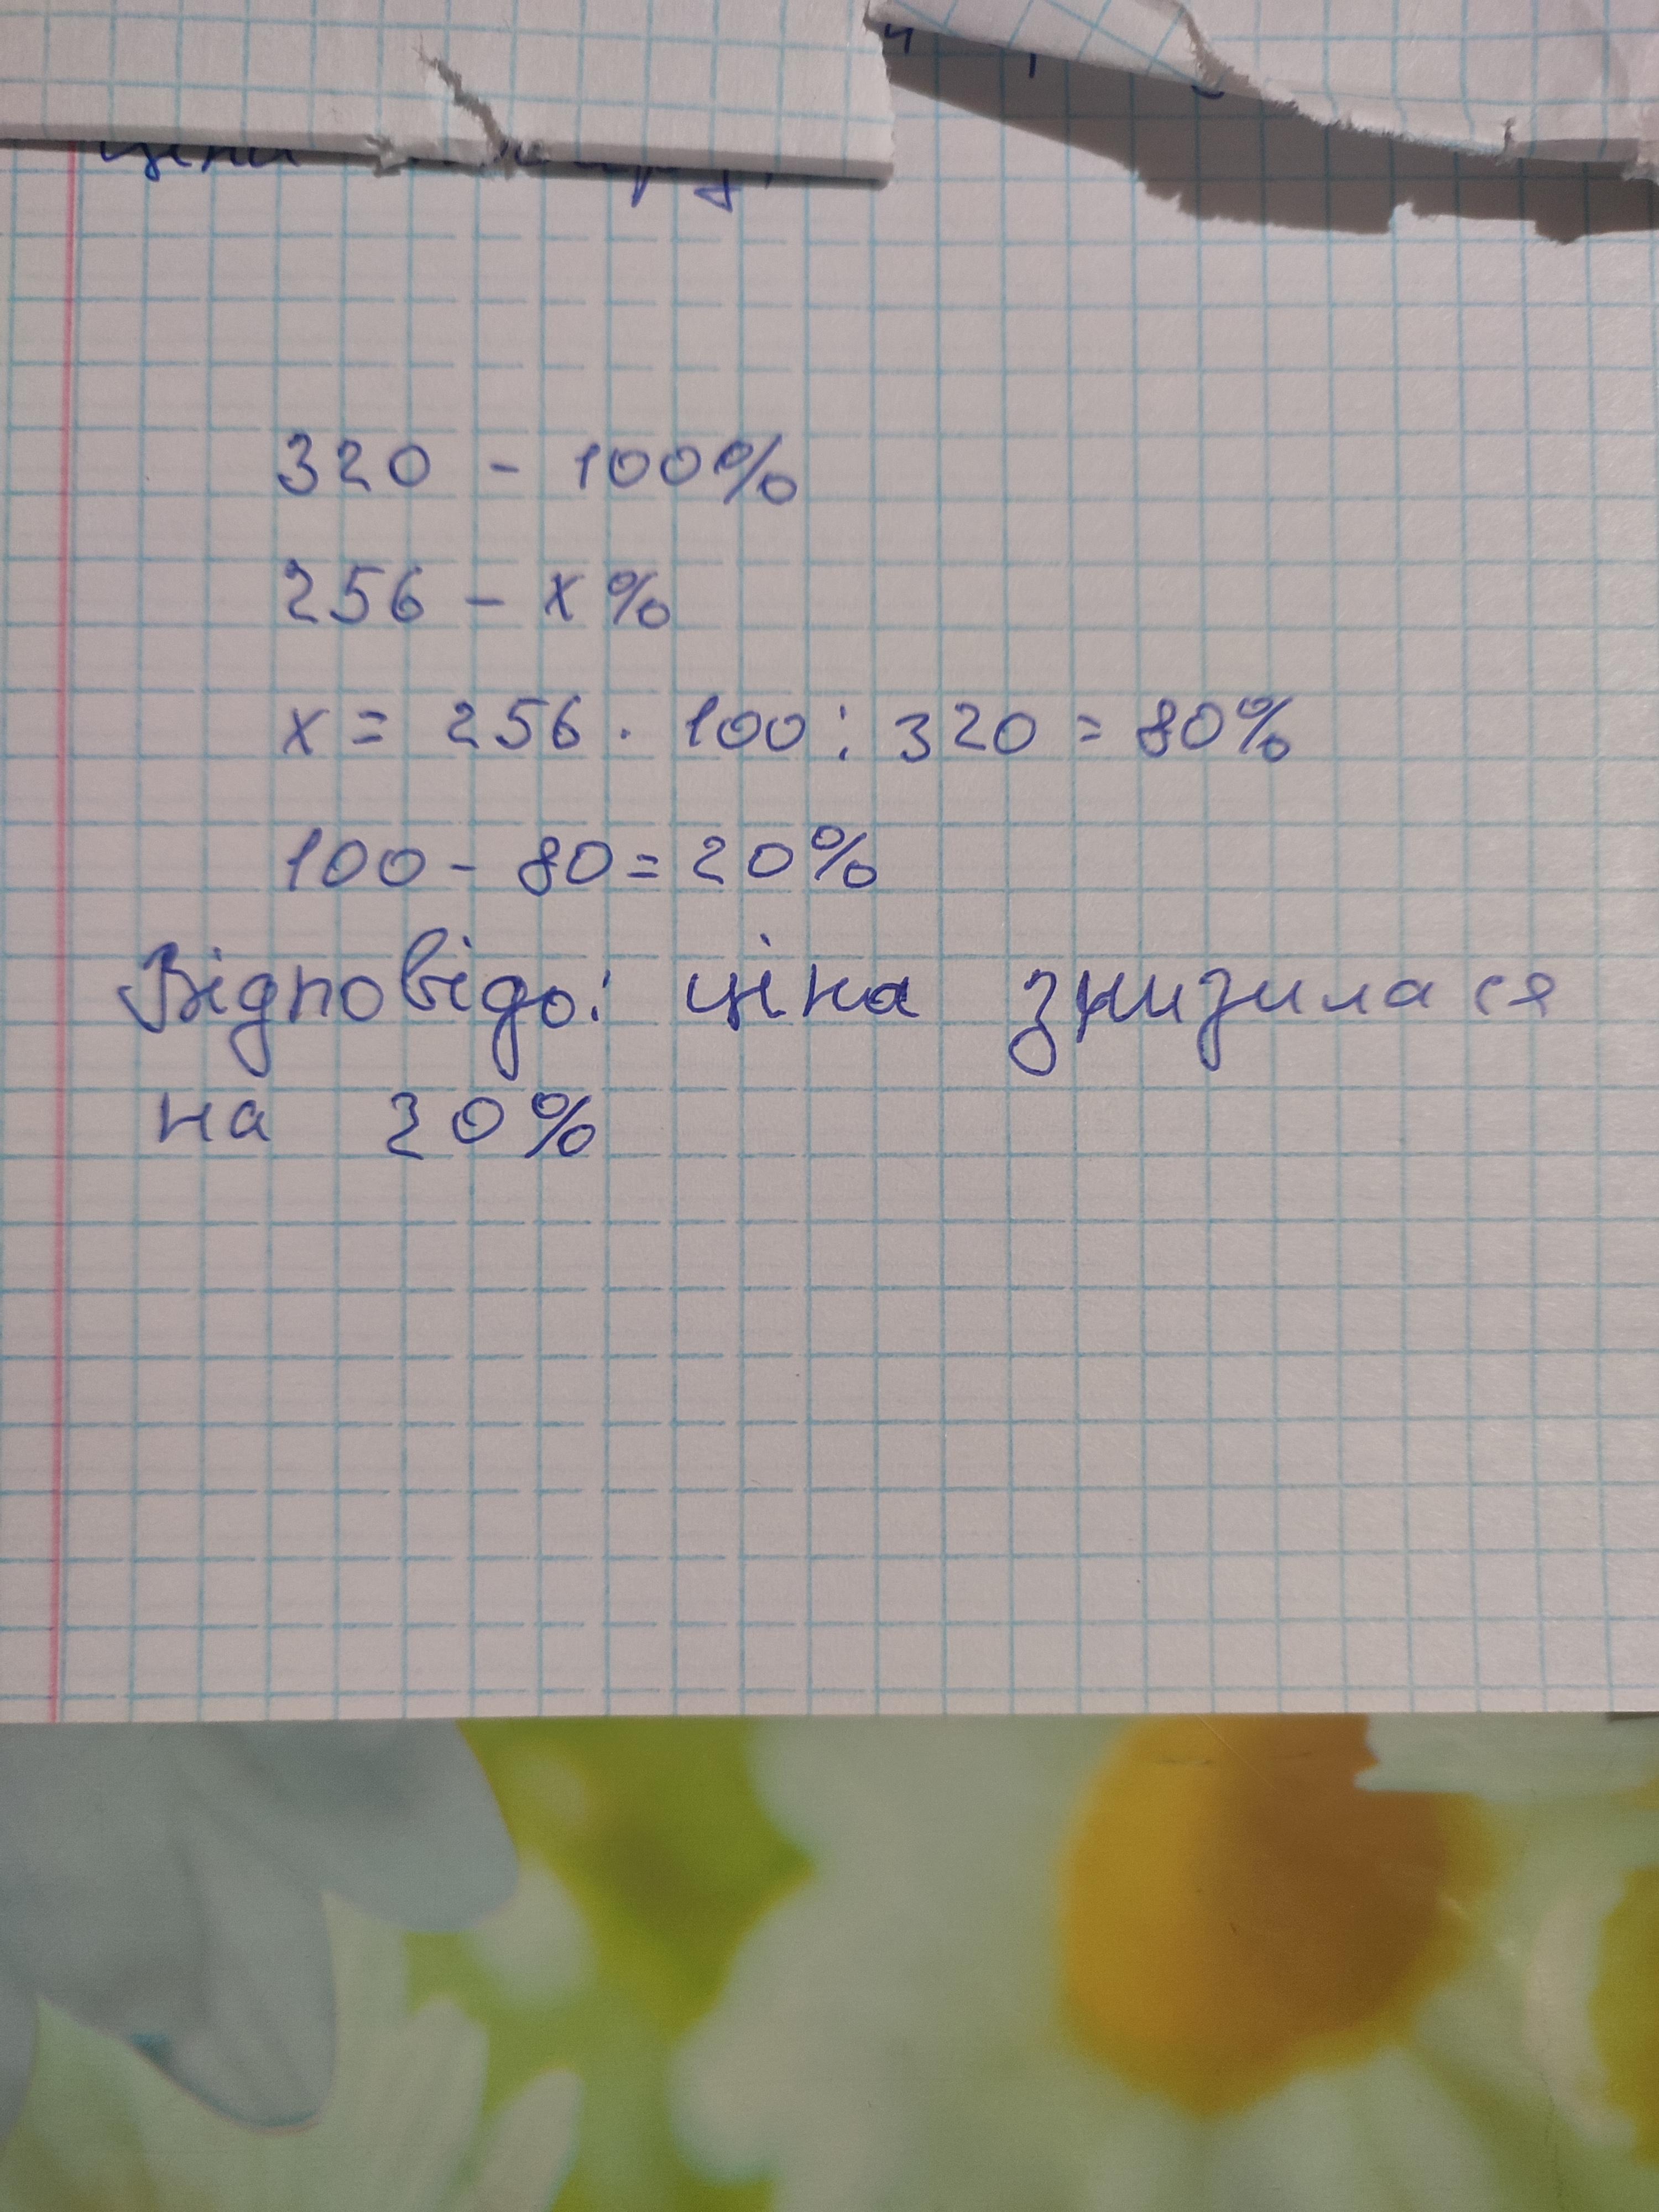 ціна
320 - 100%
256 - x%
x = 256 · 100 : 320 = 80%
100 - 80 = 20%
Відповідь: ціна знизилася
на 20%